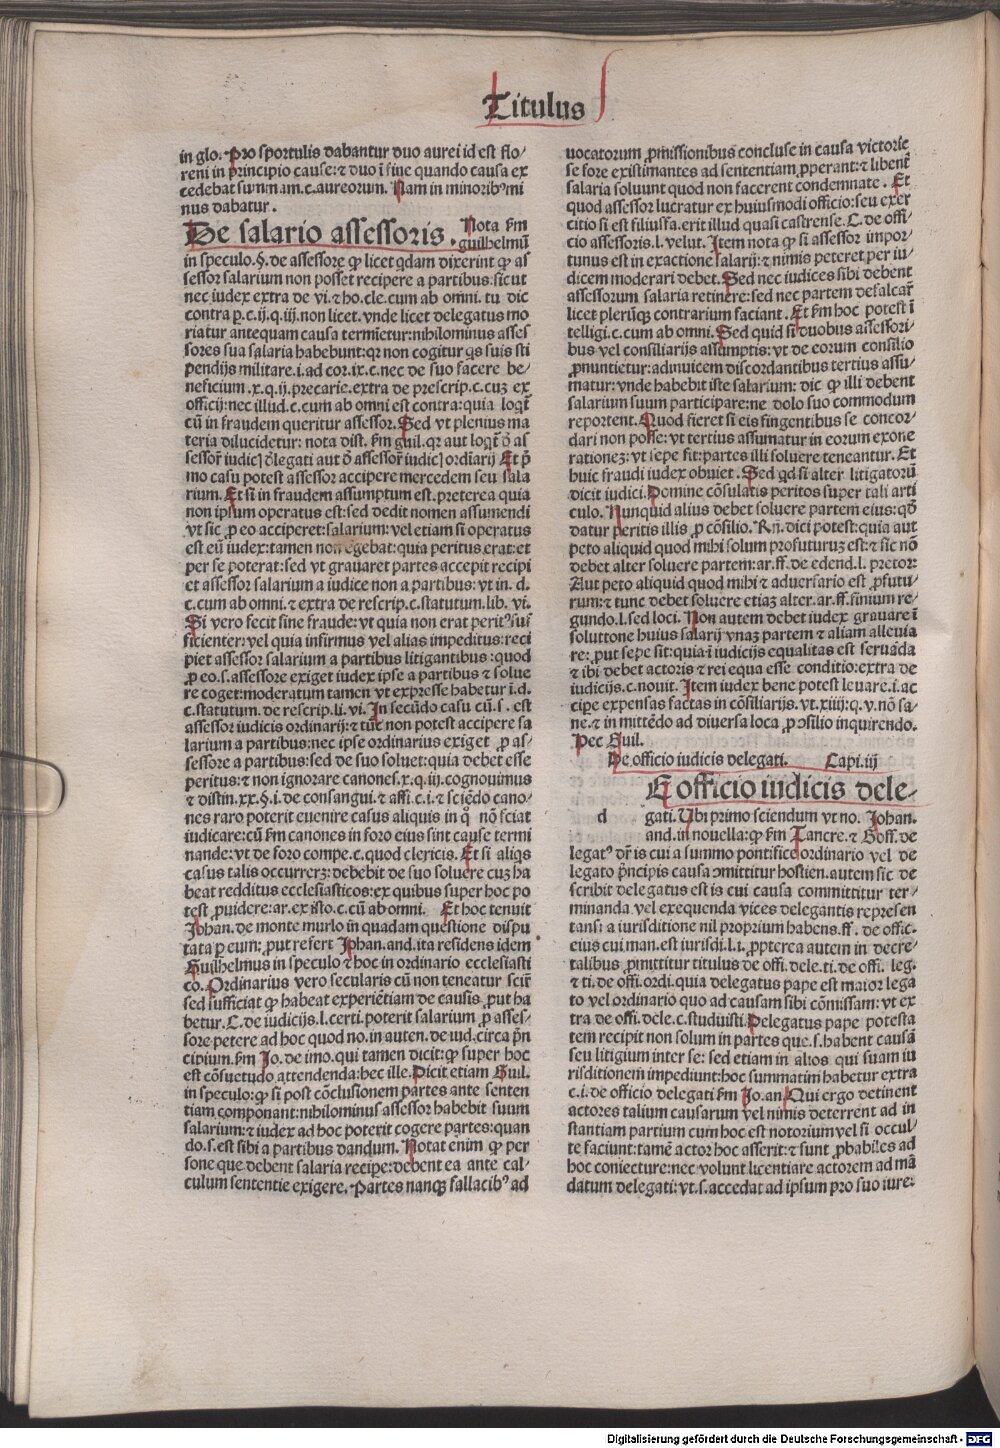 Titulus
in glo. Pro sportulis dabantur duo aurei id est flo/
reni in principio cause: ⁊ duo ī fine quando causa ex
cedebat summam .c. aureorum. Nam in minoribꝰ mi
nus dabatur.
De salario assessoris. Nota ẜm
guilhelmū
in speculo. §. de assessore ꝙ licet qdam dixerint ꝙ as
sessor salarium non posset recipere a partibus: sicut
nec iudex extra de vi. ⁊ ho. cle. cum ab omni. tu dic
contra ꝑ.c.ij.q.iij. non licet. vnde licet delegatus mo
riatur antequam causa termīetur: nihilominus asses
sores sua salaria habebunt: qꝛ non cogitur qs suis sti
pendijs militare. i. ad cor. ix. c. nec de suo facere be/
neficium .x.q.ij. precarie. extra de prescrip. c. cuꝫ ex
officij: nec illud .c. cum ab omni est contra: quia loqt̄
cū in fraudem queritur assessor. Sed vt plenius ma
teria dilucidetur: nota dist. ẜm guil. qꝛ aut loqt̄ ō as
sessor̄ iudicꝭ ōlegati aut ō assessor̄ iudicꝭ ordīarij Et p̄
mo casu potest assessor accipere mercedem seu sala
rium. Et si in fraudem assumptum est. preterea quia
non ipsum operatus est: sed dedit nomen assumendi
vt sic ꝓ eo acciperet: salarium: vel etiam si operatus
est eū iudex: tamen non egebat: quia peritus erat: et
per se poterat: sed vt grauaret partes accepit recipi
et assessor salarium a iudice non a partibus: vt in. d.
c. cum ab omni. ⁊ extra de rescrip. c. statutum. lib. vi.
Si vero fecit sine fraude: vt quia non erat peritꝰ suf
ficienter: vel quia infirmus vel alias impeditus: reci
piet assessor salarium a partibus litigantibus: quod
ꝓ eo .s. assessore exiget iudex ipse a partibus ⁊ solue
re coget: moderatum tamen vt expresse habetur i. d.
c. statutum. de rescrip. li. vi. In secūdo casu cū .s. est
assessor iudicis ordinarij: ⁊ tūc non potest accipere sa
larium a partibus: nec ipse ordinarius exiget ꝓ as/
sessore a partibus: sed de suo soluet: quia debet esse
peritus: ⁊ non ignorare canones. x. q. iij. cognouimus
⁊ distin. xx. §. i. de consangui. ⁊ affi. c. i. ⁊ sciēdo cano/
nes raro poterit euenire casus aliquis in q̊ nō sciat
iudicare: cū ẜm canones in foro eius sint cause termi
nande: vt de foro compe. c. quod clericis. Et si aliqs
casus talis occurrerꝫ: debebit de suo soluere cuꝫ ha
beat redditus ecclesiasticos: ex quibus super hoc po
test ꝓuidere: ar. ex isto. c. cū ab omni. Et hoc tenuit
Johan. de monte murlo in quadam questione dispu
tata ꝑ eum: ꝓut refert Johan. and. ita residens idem
Guilhelmus in speculo ⁊ hoc in ordinario ecclesiasti
co. Ordinarius vero secularis cū non teneatur scir̄
sed sufficiat ꝙ habeat experiētiam de causis ꝓut ha
betur. C. de iudicijs. l. certi. poterit salarium ꝓ asses/
sore petere ad hoc quod no. in auten. de iud. circa p̄n
cipium. ẜm Jo. de imo. qui tamen dicit: ꝙ super hoc
est cōsuetudo attendenda: hec ille. Dicit etiam Guil.
in speculo: ꝙ si post cōclusionem partes ante senten
tiam componant: nihilominus assessor habebit suum
salarium: ⁊ iudex ad hoc poterit cogere partes: quan
do .s. est sibi a partibus dandum. Notat enim ꝙ per
sone que debent salaria recipe: debent ea ante cal/
culum sententie exigere. Partes nanqꝫ fallacibꝰ ad
uocatorum ꝓmissionibus concluse in causa victorie
se fore existimantes ad sententiam ꝓperant: ⁊ libent̄
salaria soluunt quod non facerent condemnate. Et
quod assessor lucratur ex huiusmodi officio: seu exer
citio si est filiusfa. erit illud quasi castrense. C. de offi/
cio assessoris. l. velut. Item nota ꝙ si assessor impor/
tunus est in exactione salarij: ⁊ nimis peteret per iu/
dicem moderari debet. Sed nec iudices sibi debent
assessorum salaria retinere: sed nec partem defalcar̄
licet plerūqꝫ contrarium faciant. Et ẜm hoc potest ī
telligi. c. cum ab omni. Sed quid si duobus assessori/
bus vel consiliarijs assumptis: vt de eorum consilio
ꝓnuntietur: adinuicem discordantibus tertius assu/
matur: vnde habebit iste salarium: dic ꝙ illi debent
salarium suum participare: ne dolo suo commodum
reportent. Quod fieret si eis fingentibus se concor/
dari non posse: vt tertius assumatur in eorum exone
rationeꝫ: vt sepe fit: partes illi soluere teneantur. Et
huic fraudi iudex obuiet. Sed qd si alter litigatorū
dicit iudici. Domine cōsulatis peritos super tali arti
culo. Nunquid alius debet soluere partem eius: qđ
datur peritis illis ꝓ cōsilio. Rñ. dici potest: quia aut
peto aliquid quod mihi solum profuturuꝫ est: ⁊ sic nō
debet alter soluere partem: ar. ff. de edend. l. pretor:
Aut peto aliquid quod mihi ⁊ aduersario est ꝓfutu/
rum: ⁊ tunc debet soluere etiaꝫ alter. ar. ff. finium re/
gundo. l. sed loci. Non autem debet iudex grauare ī
soluttone huius salarij vnaꝫ partem ⁊ aliam alleuia
re: ꝓut sepe fit: quia i iudicijs equalitas est seruāda
⁊ ibi debet actoris ⁊ rei equa esse conditio: extra de
iudicijs. c. nouit. Item iudex bene potest leuare. i. ac
cipe expensas factas in cōsiliarijs. vt. xiiij. q. v. nō sa/
ne. ⁊ in mittēdo ad diuersa loca ꝓ ↄsilio inquirendo.
Hec Guil.
De officio iudicis delegati. Capi. iij
E officio iudicis dele/
d gati. Ubi primo sciendum vt no. Johan.
and. in nouella: ꝙ ẜm Tancre. ⁊ Goff. de
legatꝰ dr̄ is cui a summo pontifice ordinario vel de
legato p̄ncipis causa ↄmittitur hostien. autem sic de
scribit delegatus est is cui causa committitur ter/
minanda vel exequenda vices delegantis represen
tans: a iurisditione nil proprium habens. ff. de offic.
eius cui man. est iurisdi. l. i. ꝓpterea autem in decre/
talibus ꝓmittitur titulus de offi. dele. ti. de offi. leg.
⁊ ti. de offi. ordi. quia delegatus pape est maior lega
to vel ordinario quo ad causam sibi cōmissam: vt ex
tra de offi. dele. c. studuisti. Delegatus pape potesta
tem recipit non solum in partes que .s. habent causā
seu litigium inter se: sed etiam in alios qui suam iu
risditionem impediunt: hoc summatim habetur extra
c. i. de officio delegati ẜm Jo. an. Qui ergo detinent
actores talium causarum vel nimis deterrent ad in
stantiam partium cum hoc est notorium vel si occul/
te faciunt: tamē actor hoc asserit: ⁊ sunt ꝓbabiles ad
hoc coniecture: nec volunt licentiare actorem ad mā
datum delegati: vt .s. accedat ad ipsum pro suo iure:
Digitalisierung gefördert durch die Deutsche Forschungsgemeinschaft - DFG